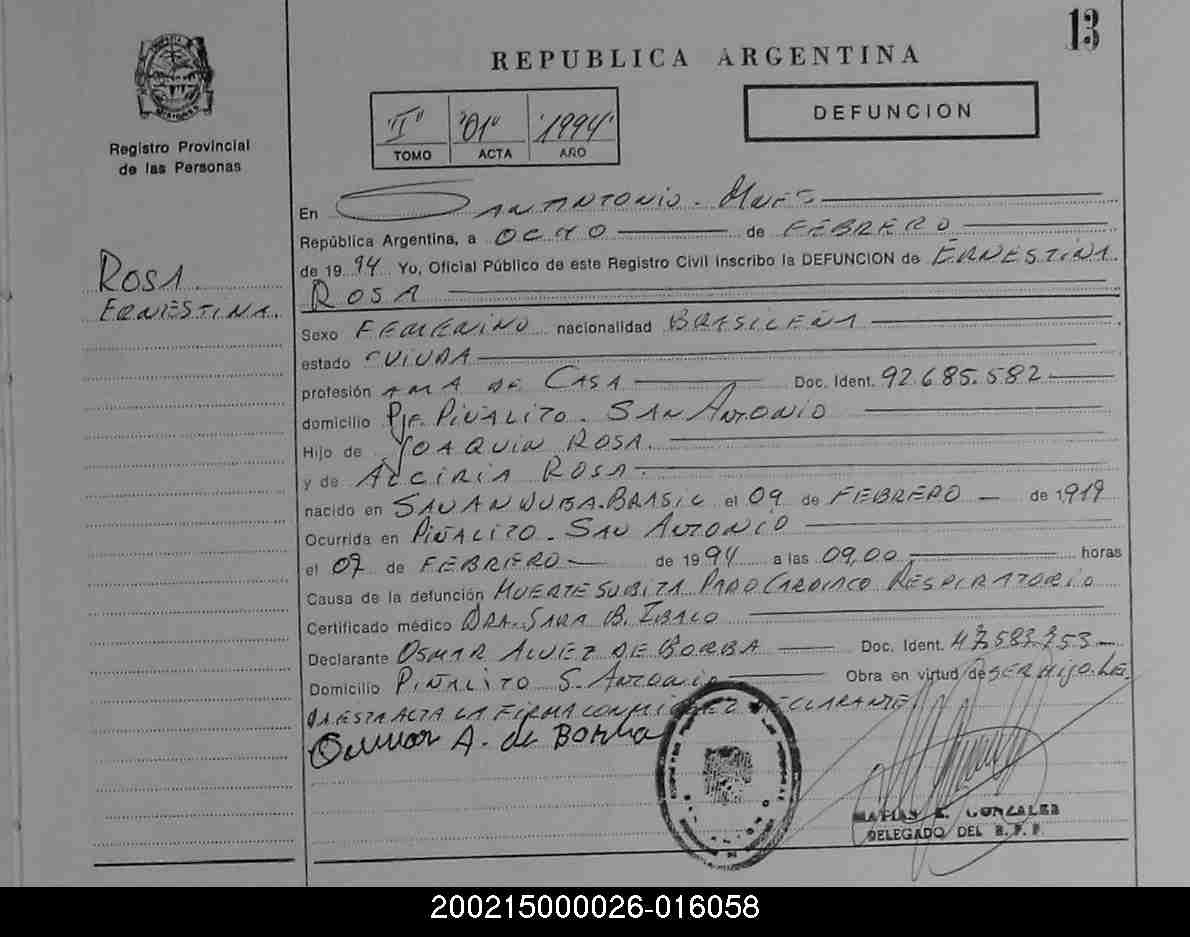 13
REPUBLICA ARGENTINA
DEFUNCION
"I" "01" "1994"
TOMO ACTA AÑO
Registro Provincial
de las Personas
ROSA
ERNESTINA.
En SAN ANTONIO - Mnes
República Argentina, a OCHO de FEBRERO
de 1994 Yo, Oficial Público de este Registro Civil inscribo la DEFUNCION de ERNESTINA
ROSA
Sexo FEMENINO nacionalidad BRASILEÑA
estado VIUDA
profesión AMA DE CASA Doc. Ident. 92.685.582
domicilio Pje. PIÑALITO - SAN ANTONIO
Hijo de JOAQUIN ROSA.
y de ALCIRIA ROSA.
nacido en BRASIL el 09 de FEBRERO de 1919
Ocurrida en PIÑALITO - SAN ANTONIO
el 07 de FEBRERO de 1994 a las 09,00 horas
Causa de la defunción MUERTE SUBITA PARO CARDIACO RESPIRATORIO
Certificado médico DRA. SARA B.
Declarante OSMAR ALVEZ DE BORBA Doc. Ident.
Domicilio PIÑALITO S. ANTONIO Obra en virtud de SER HIJO. LE
ESTA ACTA LA FIRMA CONMIGO EL DECLARANTE
A. de Borba
MATIAS E. GONZALEZ
DELEGADO DEL R.P.P.
200215000026-016058